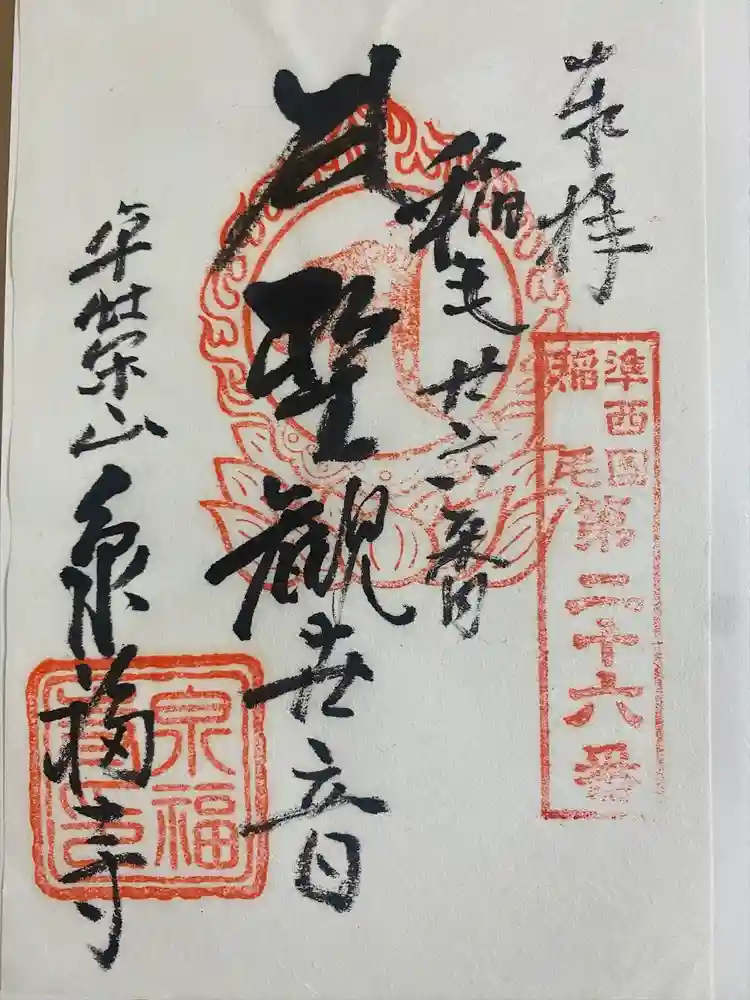 奉拝
準西国
稲毛
第二十六番
稲毛廿六番
聖観世音
栄山 泉福寺
泉福
寺印